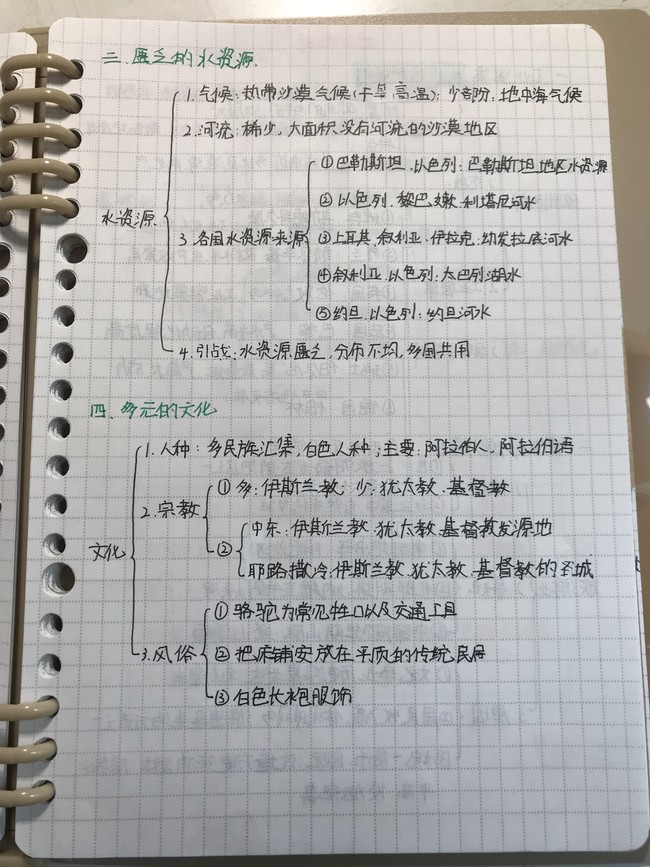 三. 匮乏的水资源.
水资源
1. 气候: 热带沙漠气候(干旱高温); 少部份: 地中海气候
2. 河流: 稀少, 大面积没有河流的沙漠地区
3. 各国水资源来源
① 巴勒斯坦. 以色列: 巴勒斯坦地区水资源
② 以色列. 黎巴嫩: 利塔尼河水
③ 土耳其. 叙利亚. 伊拉克: 幼发拉底河水
④ 叙利亚. 以色列: 太巴列湖水
⑤ 约旦. 以色列: 约旦河水
4. 引战: 水资源匮乏, 分布不均, 多国共用
四. 多元的文化
文化
1. 人种: 多民族汇集, 白色人种; 主要: 阿拉伯人, 阿拉伯语
2. 宗教
① 多: 伊斯兰教; 少: 犹太教. 基督教
②
中东: 伊斯兰教. 犹太教. 基督教发源地
耶路撒冷: 伊斯兰教. 犹太教. 基督教的圣城
3. 风俗
① 骆驼为常见牲口以及交通工具
② 把床铺安放在平顶的传统民居
③ 白色长袍服饰